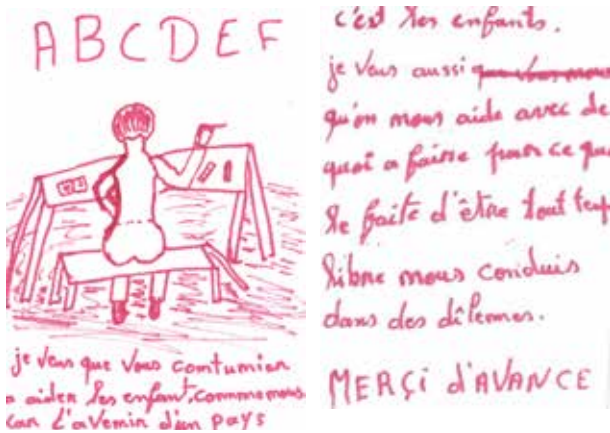 ABCDEF
je veus que vous comtumier
a aider les enfant, comme nous
car l'avenir d'un pays
c'est les enfants.
je veus aussi
qu'on nous aide avec de
quoi a faire parce que
le faite d'être tout temp
libre nous conduis
dans des dilemes.
MERÇi d'AVANCE